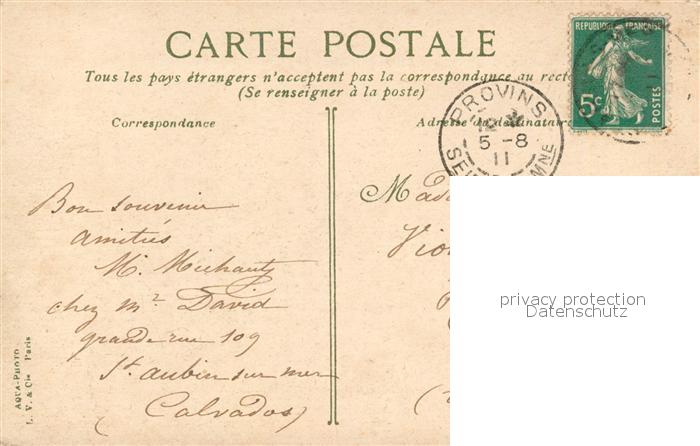 CARTE POSTALE
Tous les pays étrangers n'acceptent pas la correspondance au recto
(Se renseigner à la poste)
Correspondance
Adresse du destinataire
REPUBLIQUE FRANÇAISE
5c
POSTES
PROVINS
5-8
11
SEINE
MNE
Bon souvenir
amitiés
M. Michaut
chez Mr David
grande rue 109
St aubin sur mer
(Calvados)
Mad
Vio
privacy protection
Datenschutz
AQUA-PHOTO
L. V. & Cie Paris